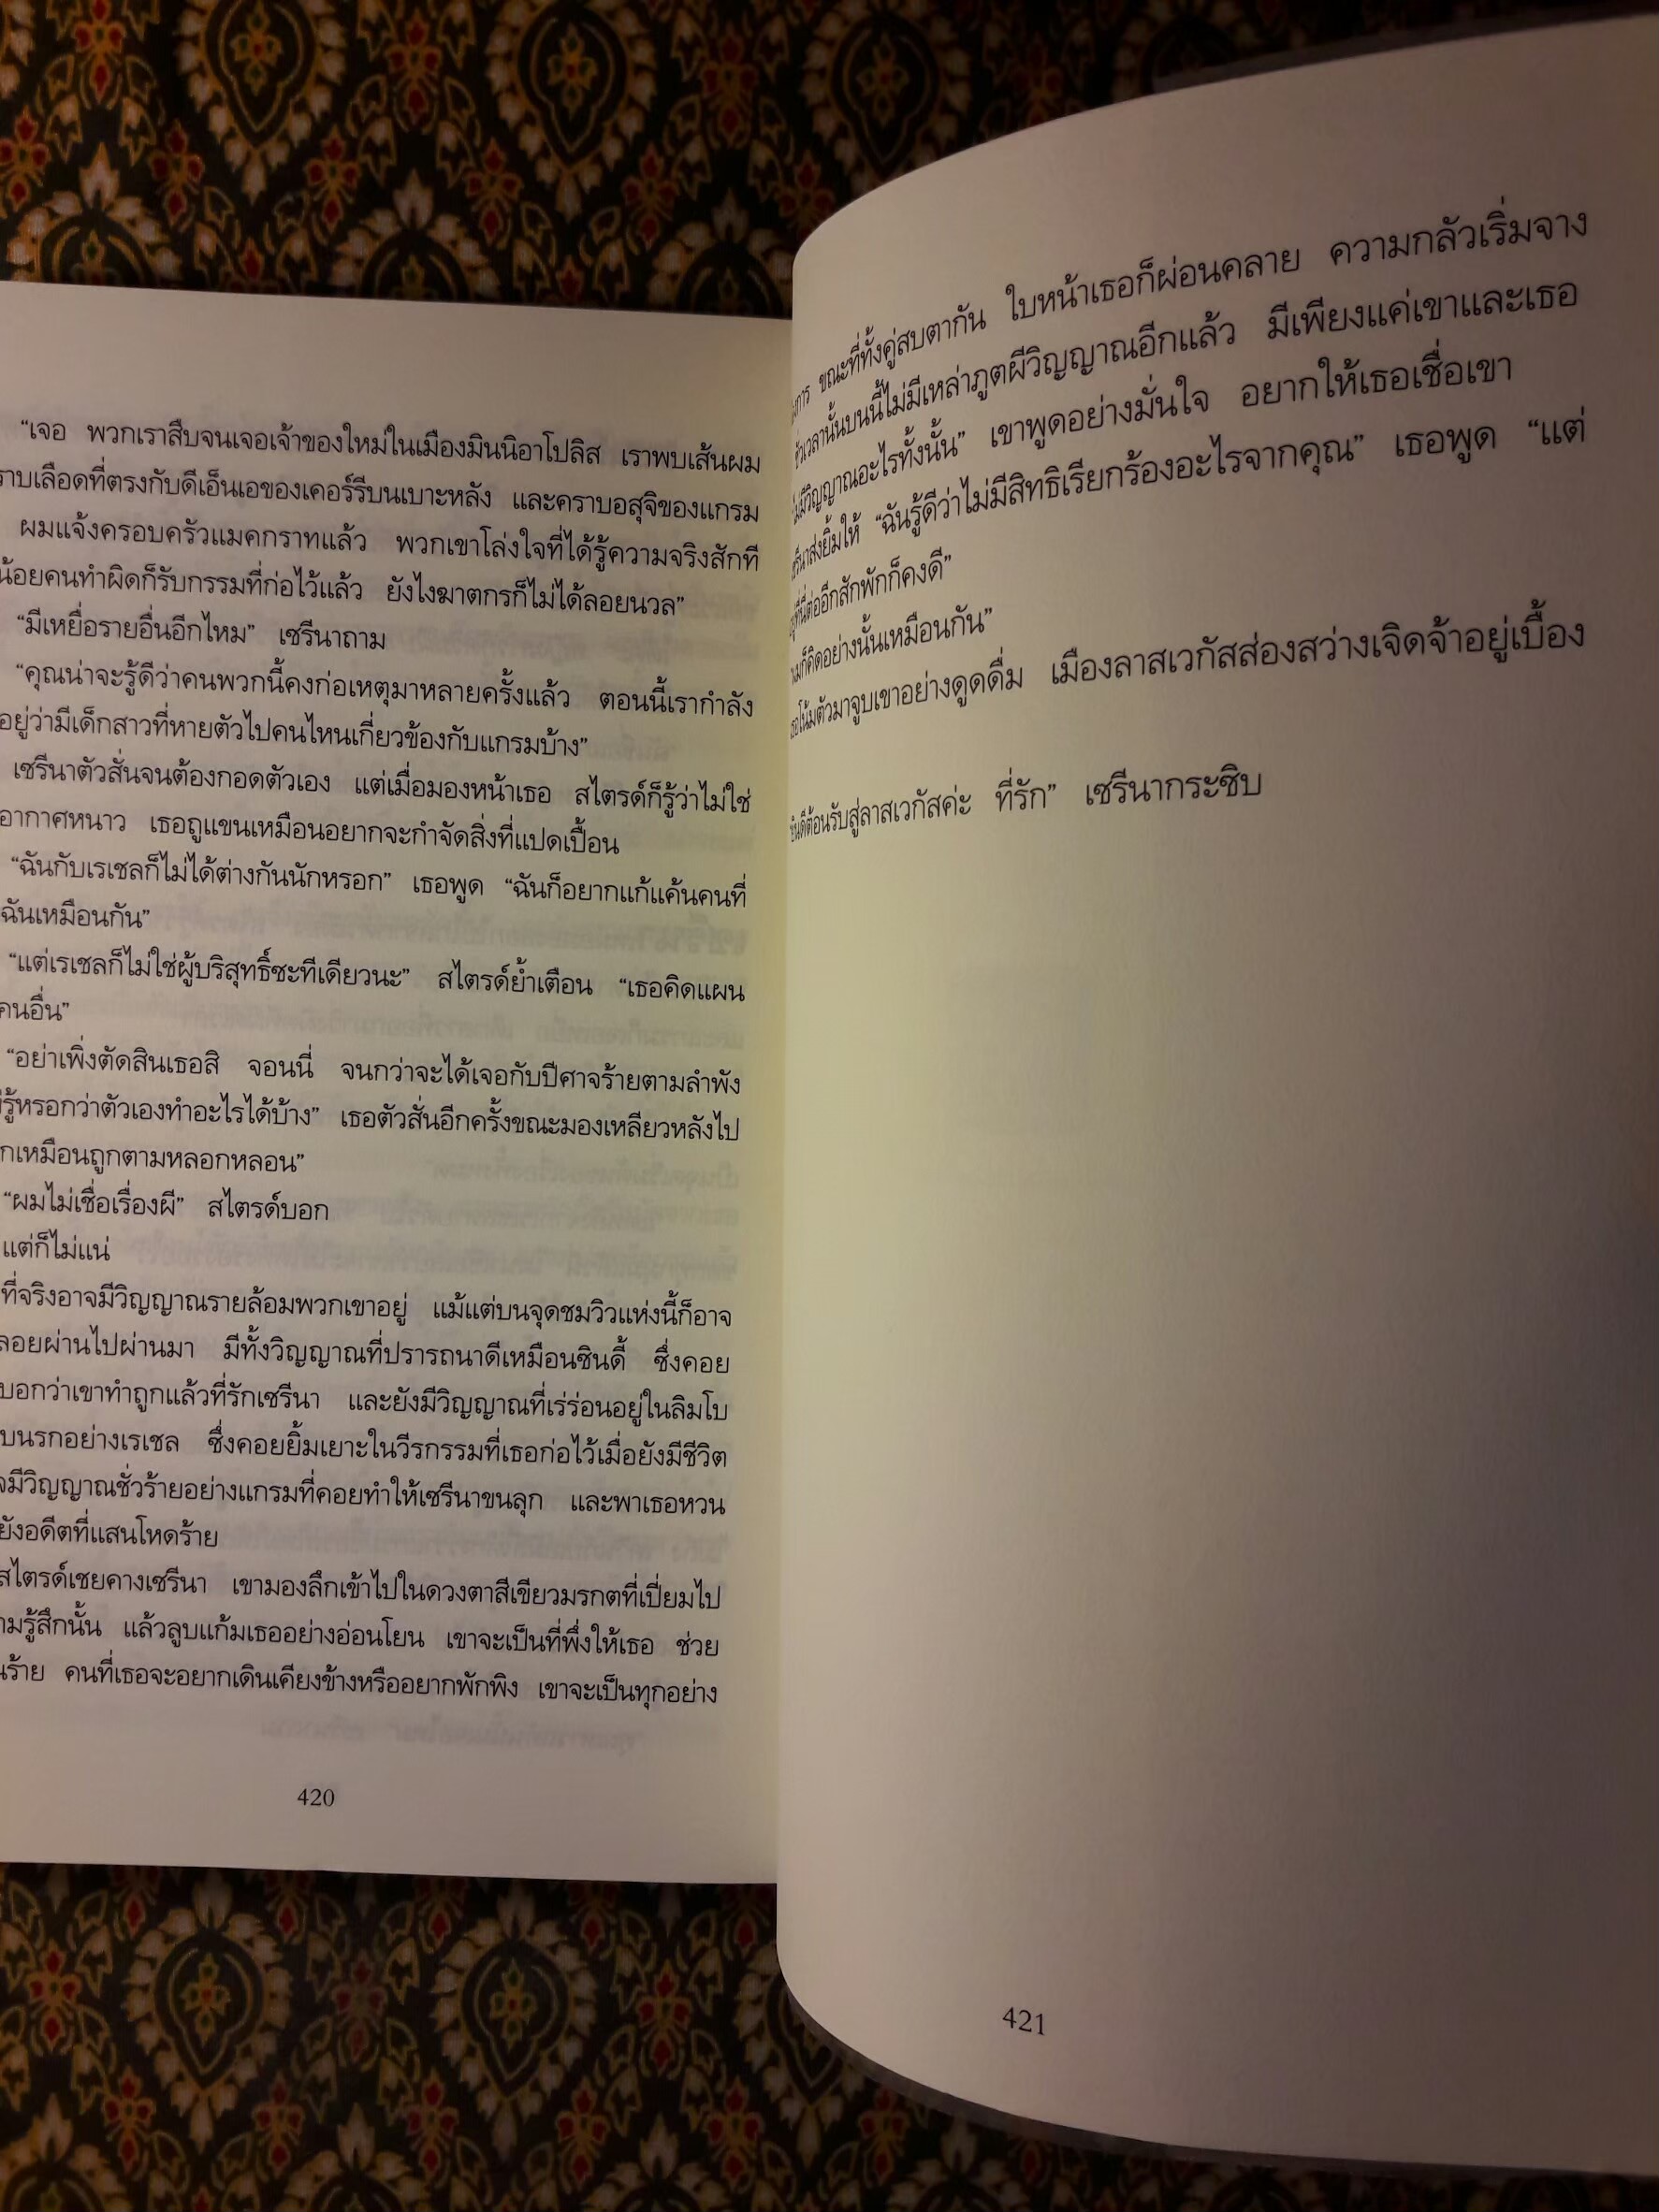 “เจอ พวกเราสืบจนเจอเจ้าของใหม่ในเมืองมินนิอาโปลิส เราพบเส้นผม
ราบเลือดที่ตรงกับดีเอ็นเอของเคอร์รีบนเบาะหลัง และคราบอสุจิของแกรม
ผมแจ้งครอบครัวแมคกราทแล้ว พวกเขาโล่งใจที่ได้รู้ความจริงสักที
น้อยคนทำผิดก็รับกรรมที่ก่อไว้แล้ว ยังไงฆาตกรก็ไม่ได้ลอยนวล”
“มีเหยื่อรายอื่นอีกไหม” เซรีนาถาม
“คุณน่าจะรู้ดีว่าคนพวกนี้คงก่อเหตุมาหลายครั้งแล้ว ตอนนี้เรากำลัง
อยู่ว่ามีเด็กสาวที่หายตัวไปคนไหนเกี่ยวข้องกับแกรมบ้าง”
เซรีนาตัวสั่นจนต้องกอดตัวเอง แต่เมื่อมองหน้าเธอ สไตรด์ก็รู้ว่าไม่ใช่
อากาศหนาว เธอถูแขนเหมือนอยากจะกำจัดสิ่งที่แปดเปื้อน
“ฉันกับเรเชลก็ไม่ได้ต่างกันนักหรอก” เธอพูด “ฉันก็อยากแก้แค้นคนที่
ฉันเหมือนกัน”
“แต่เรเชลก็ไม่ใช่ผู้บริสุทธิ์ซะทีเดียวนะ” สไตรด์ย้ำเตือน “เธอคิดแผน
คนอื่น”
“อย่าเพิ่งตัดสินเธอสิ จอนนี่ จนกว่าจะได้เจอกับปีศาจร้ายตามลำพัง
รู้หรอกว่าตัวเองทำอะไรได้บ้าง” เธอตัวสั่นอีกครั้งขณะมองเหลียวหลังไป
กเหมือนถูกตามหลอกหลอน”
“ผมไม่เชื่อเรื่องผี” สไตรด์บอก
แต่ก็ไม่แน่
ที่จริงอาจมีวิญญาณรายล้อมพวกเขาอยู่ แม้แต่บนจุดชมวิวแห่งนี้ก็อาจ
ลอยผ่านไปผ่านมา มีทั้งวิญญาณที่ปรารถนาดีเหมือนซินดี้ ซึ่งคอย
บอกว่าเขาทำถูกแล้วที่รักเซรีนา และยังมีวิญญาณที่เร่ร่อนอยู่ในลิมโบ
บนรกอย่างเรเชล ซึ่งคอยยิ้มเยาะในวีรกรรมที่เธอก่อไว้เมื่อยังมีชีวิต
จมีวิญญาณชั่วร้ายอย่างแกรมที่คอยทำให้เซรีนาขนลุก และพาเธอหวน
ยังอดีตที่แสนโหดร้าย
สไตรด์เชยคางเซรีนา เขามองลึกเข้าไปในดวงตาสีเขียวมรกตที่เปี่ยมไป
ามรู้สึกนั้น แล้วลูบแก้มเธออย่างอ่อนโยน เขาจะเป็นที่พึ่งให้เธอ ช่วย
นร้าย คนที่เธอจะอยากเดินเคียงข้างหรืออยากพักพิง เขาจะเป็นทุกอย่าง
420
ขณะที่ทั้งคู่สบตากัน ใบหน้าเธอก็ผ่อนคลาย ความกลัวเริ่มจาง
เวลานั้นบนนี้ไม่มีเหล่าภูตผีวิญญาณอีกแล้ว มีเพียงแค่เขาและเธอ
ไม่มีวิญญาณอะไรทั้งนั้น” เขาพูดอย่างมั่นใจ อยากให้เธอเชื่อเขา
เซรีนาส่งยิ้มให้ “ฉันรู้ดีว่าไม่มีสิทธิเรียกร้องอะไรจากคุณ” เธอพูด “แต่
อยู่ที่นี่ต่ออีกสักพักก็คงดี”
ผมก็คิดอย่างนั้นเหมือนกัน”
เธอโน้มตัวมาจูบเขาอย่างดูดดื่ม เมืองลาสเวกัสส่องสว่างเจิดจ้าอยู่เบื้อง
ยินดีต้อนรับสู่ลาสเวกัสค่ะ ที่รัก” เซรีนากระซิบ
421